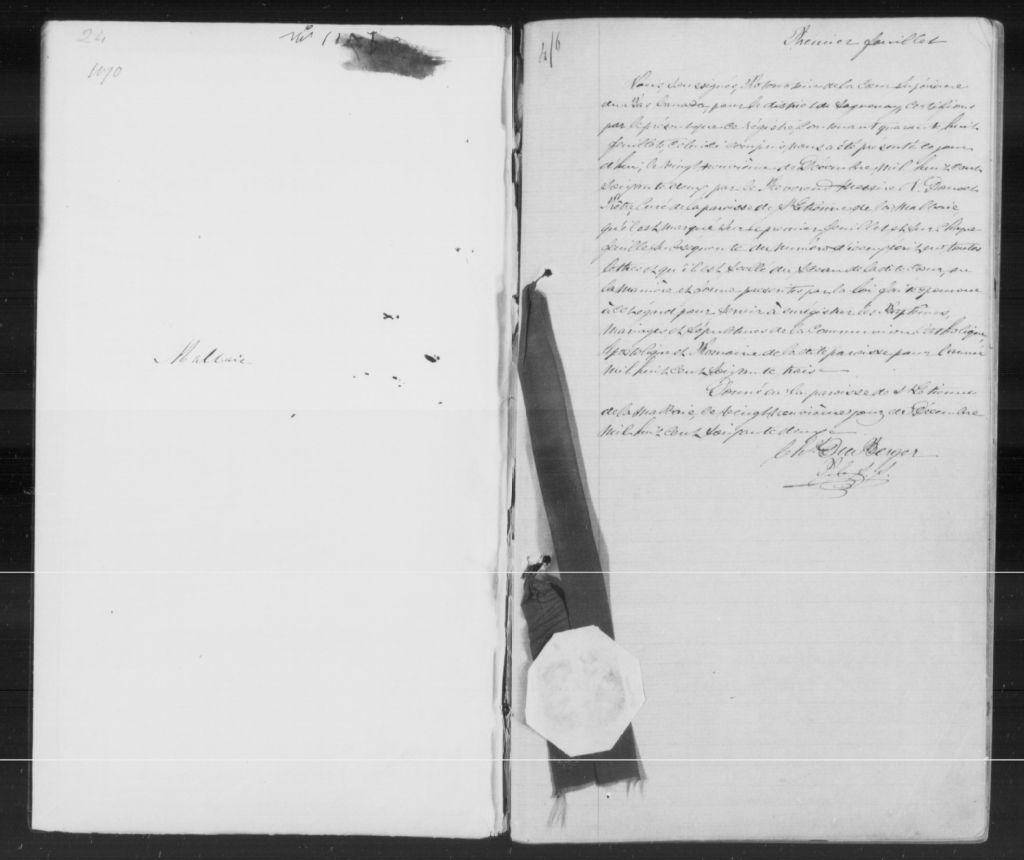 24
1070
Malbaie
4/6
Premier feuillet
Nous, Soussigné, Protonotaire de la Cour Supérieure
du Bas Canada, pour le district de Saguenay, Certifions
par le présent que ce régistre, Contenant quarante huit
feuillets, Celui ci compris, nous a été présenté ce jour
d'hui, le vingt neuvième de Décembre, mil huit cent
Soixante deux par le Reverend Messire
Ptre, Curé de la paroisse de St Etienne de la Malbaie,
qu'il est marqué sur le premier feuillet et sur chaque
feuillet Subséquent du numéro d'icem écrit en toutes
lettres et qu'il est Scellé du Sceau de la dite Cour, en
la manière et forme prescrites par la loi
pour Servir à enrégistrer les Baptêmes,
Mariages et Sépultures de la Communion Catholique
Apostolique et Romaine de la dite paroisse pour l'année
mil huit cent Soixante trois
Donné en la paroisse de St Etienne
de la Malbaie, le vingt neuvième jour de Décembre
mil huit cent Soixante deux
Chs Du Berger
P. C. S.